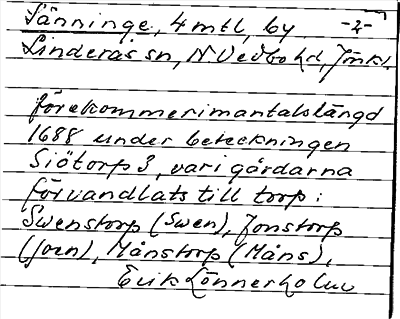 Sänninge, 4 mtl, by -2-
Linderås sn, N Vedbo hd, Jönk l.
förekommer i mantalslängd
1688 under beteckningen
Siötorp 3, vari gårdarna
förvandlats till torp:
Swenstorp (Swen), Jonstorp
(Joen), Månstorp (Måns),
Erik Lönnerholm